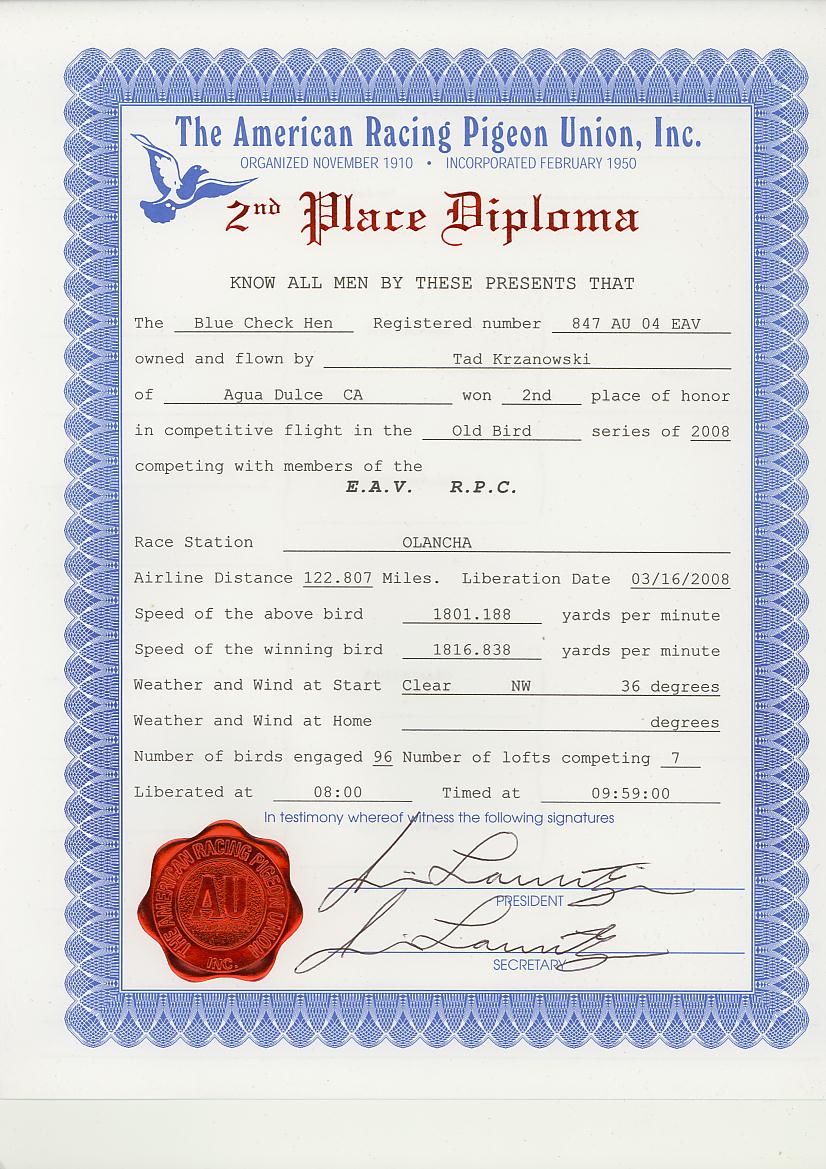 The American Racing Pigeon Union, Inc.
ORGANIZED NOVEMBER 1910 • INCORPORATED FEBRUARY 1950
2nd Place Diploma
KNOW ALL MEN BY THESE PRESENTS THAT
The Blue Check Hen Registered number 847 AU 04 EAV
owned and flown by Tad Krzanowski
of Agua Dulce CA won 2nd place of honor
in competitive flight in the Old Bird series of 2008
competing with members of the
E.A.V. R.P.C.
Race Station OLANCHA
Airline Distance 122.807 Miles. Liberation Date 03/16/2008
Speed of the above bird 1801.188 yards per minute
Speed of the winning bird 1816.838 yards per minute
Weather and Wind at Start Clear NW 36 degrees
Weather and Wind at Home degrees
Number of birds engaged 96 Number of lofts competing 7
Liberated at 08:00 Timed at 09:59:00
In testimony whereof witness the following signatures
PRESIDENT
SECRETARY
THE AMERICAN RACING PIGEON UNION
AU
INC.